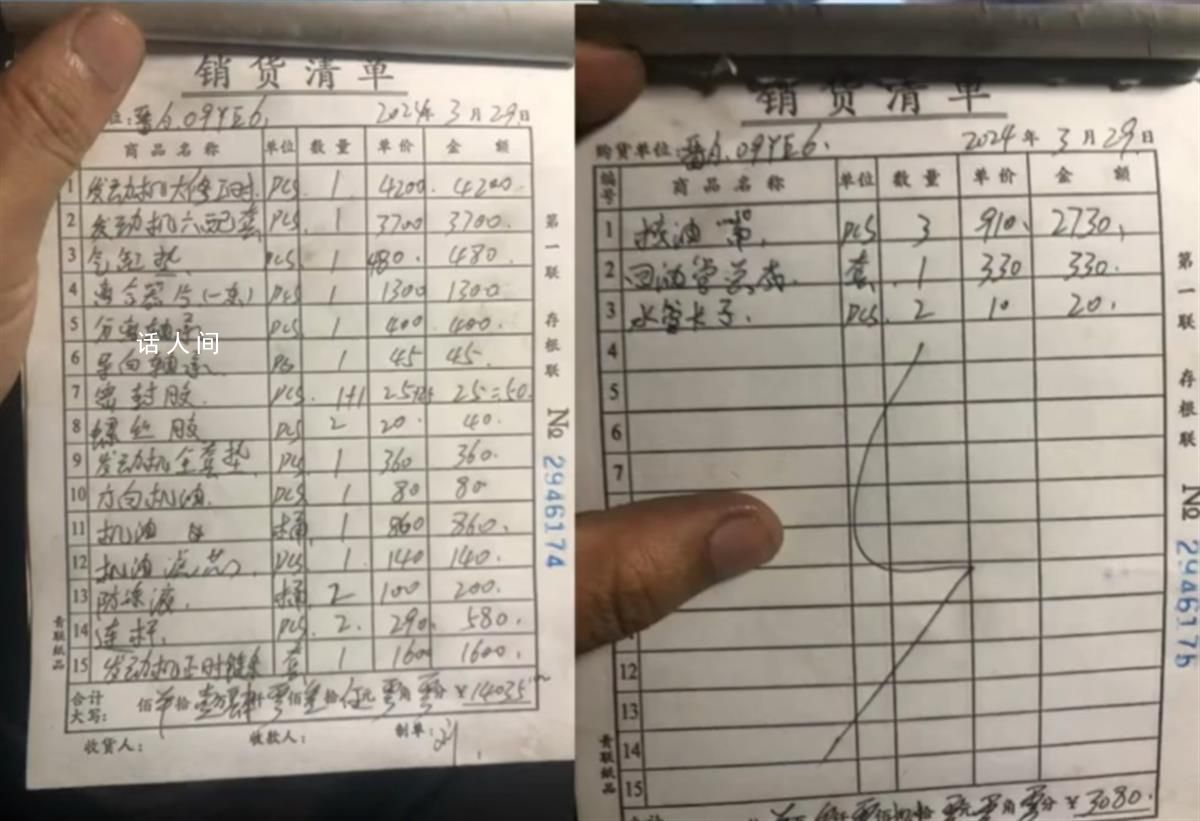 销货清单
位：晋A.09YE6. 2024年3月29日
商品名称 单位 数量 单价 金额
1 发动机大修工时. PCS. 1 4200. 4200.
2 发动机六配套 PCS. 1 3700 3700.
3 气缸垫. PCS. 1 480. 480.
4 离合器片(一套) PCS 1 1300 1300.
5 分离轴承 PCS 1 400 400.
6 导向轴承 PCS 1 45 45.
7 密封胶. PCS. 1+1 25=50.
8 螺丝胶 PCS 2 20. 40.
9 发动机全套垫. PCS. 1 360 360.
10 方向机油. PCS 1 80 80
11 机油 桶 1 860 860.
12 机油滤芯 PCS 1. 140 140.
13 防冻液. 桶 2 100 200.
14 连杆. PCS. 2. 290. 580.
15 发动机正时链条 套 1 1600 1600.
合计
大写： 佰 拾 壹万肆仟零佰叁拾伍元零角零分 ¥14035
收货人： 收款人： 制单：
第一联 存根联
№ 2946174
青联纸品
话人间
销货清单
购货单位：晋A.09YE6. 2024年3月29日
编号 商品名称 单位 数量 单价 金额
1 油 PCS 3 910. 2730.
2 回油管总成. 套. 1 330 330.
3 水管卡子. PCS. 2 10 20.
4
5
6
7
12
13
14
15
零佰捌拾零元零角零分 ¥3080.
第一联 存根联
№ 2946175
青联纸品